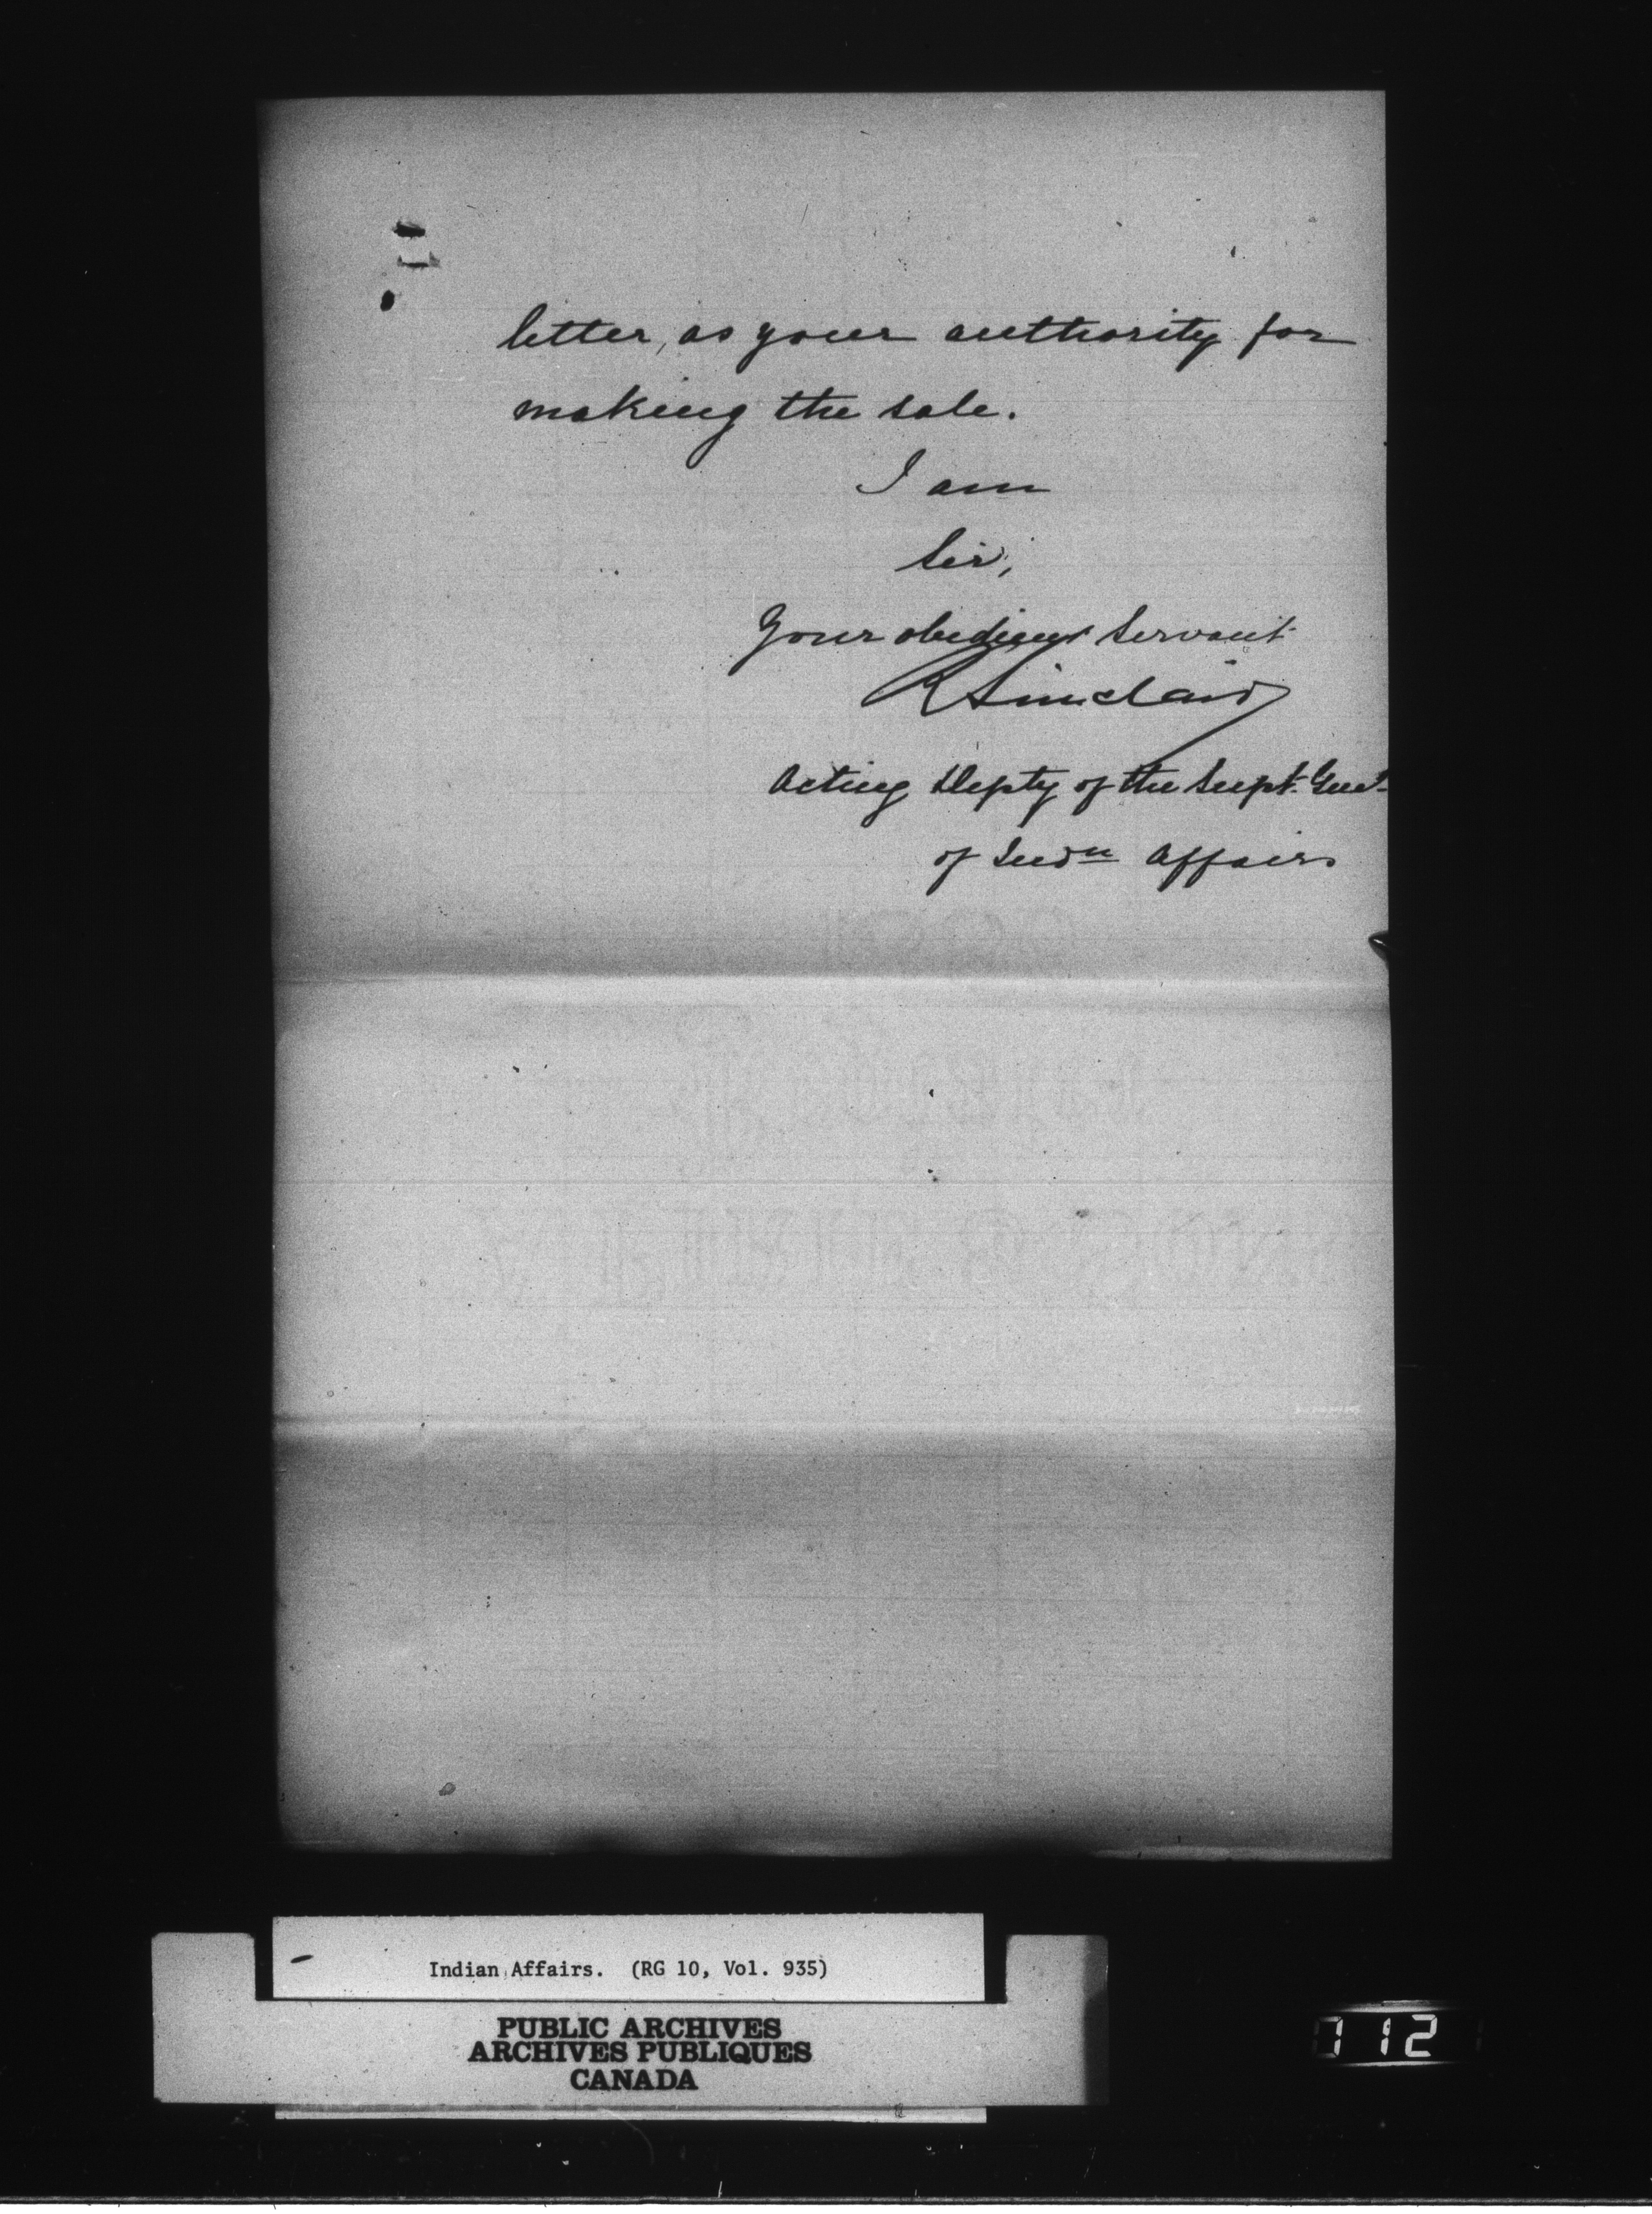 letter, as your authority for
making the sale.
I am
Sir,
Your obedient Servant
R Sinclair
Acting Depty of the Supt. Genl.
of Indn Affairs
Indian Affairs. (RG 10, Vol. 935)
PUBLIC ARCHIVES
ARCHIVES PUBLIQUES
CANADA
112